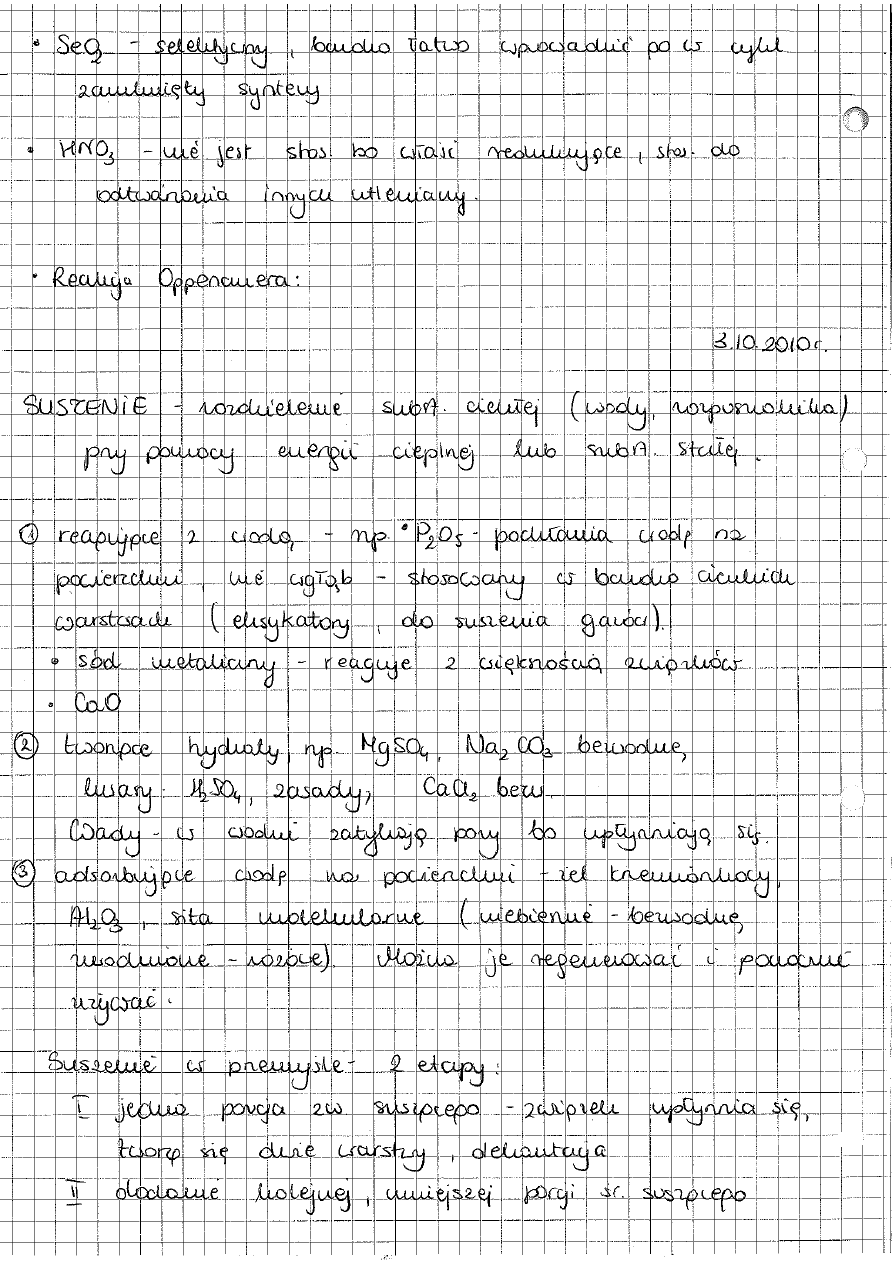 • SeO₂ - selektywny, bardzo łatwo wprowadzić go w cykl
zamknięty syntezy
• HNO₃ - nie jest stos. bo właść redukujące, stos. do
odtwarzania innych utleniaczy.
• Reakcja Oppenauera:
3.10.2010r.
SUSZENIE - rozdzielenie subst. ciekłej (wody, rozpuszczalnika)
przy pomocy energii cieplnej lub subst. stałej.
① reagujące z wodą - np. • P₂O₅ - pochłania wodę na
powierzchni, nie wgłąb - stosowany w bardzo cienkich
warstwach (eksykatory, do suszenia gazów).
• sód metaliczny - reaguje z większością związków
• CaO
② tworzące hydraty, np. MgSO₄, Na₂CO₃ bezwodne,
kwasy: H₂SO₄, zasady, CaCl₂ bezw.
Wady - w wodzie zatykają pory bo upłynniają się.
③ adsorbujące wodę na powierzchni - żel krzemionkowy,
Al₂O₃, sita molekularne (niebieskie - bezwodne,
uwodnione - różowe). Można je regenerować i ponownie
używać.
Suszenie w przemyśle - 2 etapy:
I jedna porcja zw suszącego - związek upłynnia się,
tworzą się dwie warstwy, dekantacja
II dodanie kolejnej, mniejszej porcji śr. suszącego